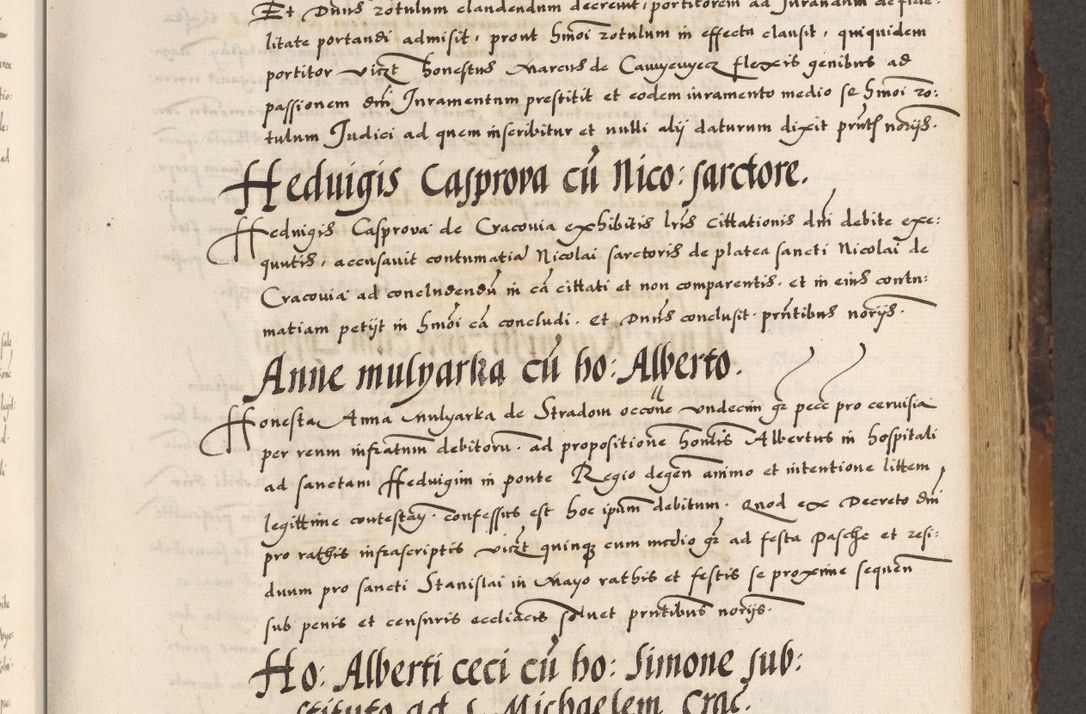 Et Dnus rotulum claudendum decrevit, portitorem ad Iurandum de fide-
litate portandi admisit, prout hmoi rotulum in effectu clausit, quiquidem
portitor vizt honestus Marcus de Cawyewyecz flexis genibus ad
passionem dni Iuramentum prestitit et eodem iuramento medio se hmoi ro:
tulum Iudici ad quem inscribitur et nulli alij daturum dixit pntb norijs.
Heduigis Casprova cū Nico: sarctore.
Heduigis Casprova de Cracovia exhibitis lris cittationis dni debite exe:
quutis, accusavit contumatia Nicolai sarctoris de platea sancti Nicolai de
Cracovia ad concludendū in cā cittati et non comparentis. et in eius contu:
matiam petijt in hmōi cā concludi. et Dnus conclusit. prntibus norijs.
Anne mulyarka cū ho: Alberto.
Honesta Anna mulyarka de Stradom occōne undecim gr pecc pro cervisia
per reum infratum debitoru. ad propositione hontis Albertus in hospitali
ad sanctam Heduigim in ponte Regio degen animo et intentione littem
legittime contestan. confessus est hoc ipum debitum. Quod ex Decreto dni
pro rathis infrascriptis vizt quinq cum medio gr ad festa Pasche et resi:
duum pro sancti Stanislai in Mayo rathis et festis se proxime sequen
sub penis et censuris eccliacis solvet prntibus norijs.
Ho: Alberti ceci cū ho: Simone sub:
stituto ad S. Michaelem Crac.